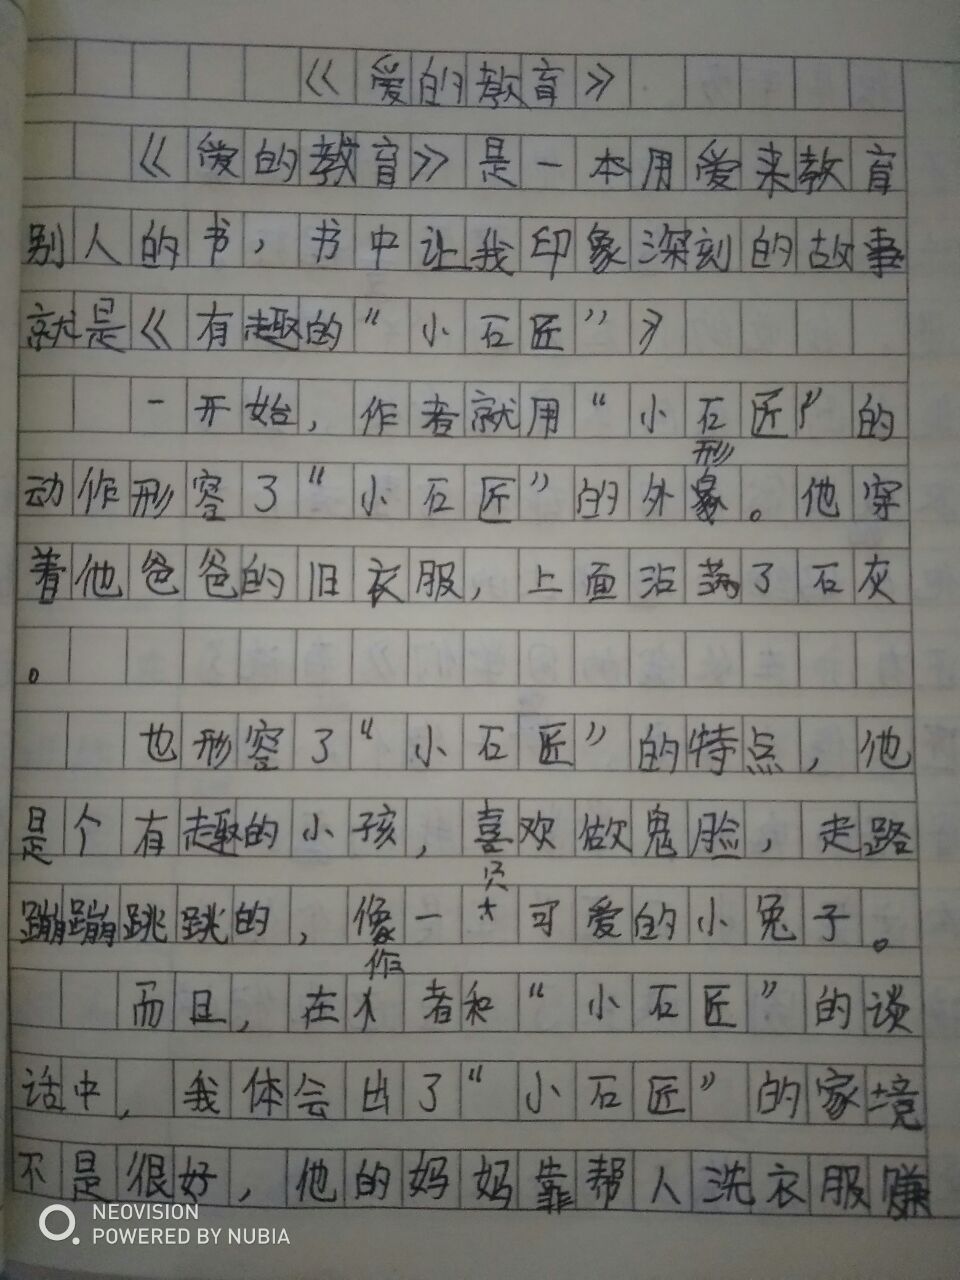 《爱的教育》
《爱的教育》是一本用爱来教育
别人的书，书中让我印象深刻的故事
就是《有趣的“小石匠”》
一开始，作者就用“小石匠”的
动作形容了“小石匠”的外形象。他穿
着他爸爸的旧衣服，上面沾满了石灰
。
也形容了“小石匠”的特点，他
是个有趣的小孩，喜欢做鬼脸，走路
蹦蹦跳跳的，像一只可爱的小兔子。
而且，在作者和“小石匠”的谈
话中，我体会出了“小石匠”的家境
不是很好，他的妈妈靠帮人洗衣服赚
NEOVISION
POWERED BY NUBIA